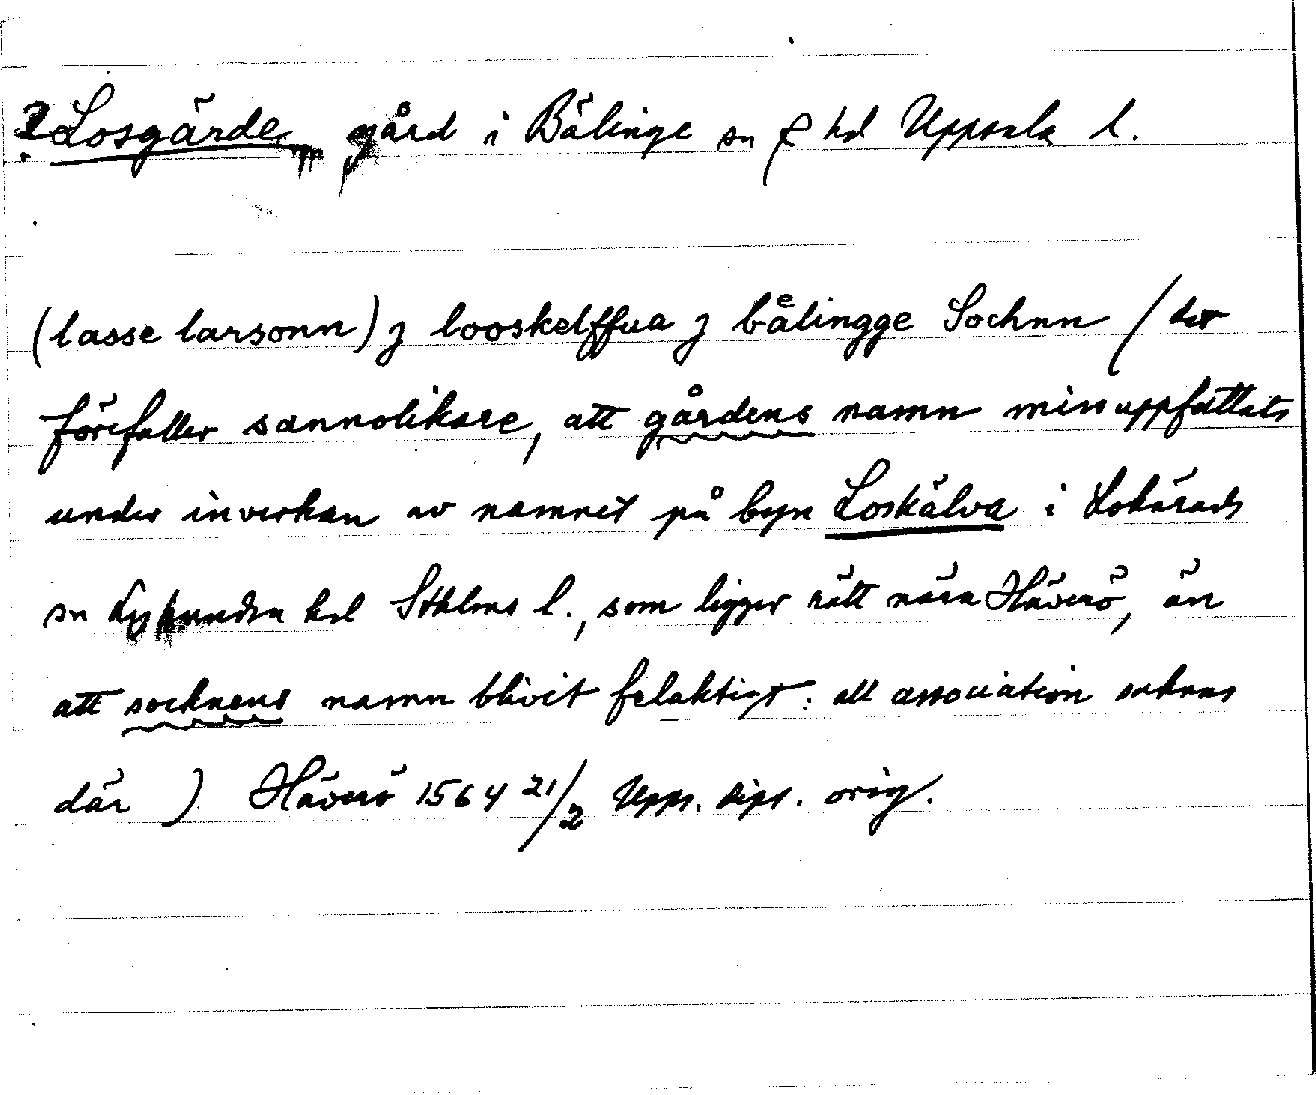 ? Losgärde, gård i Bälinge sn & hd Uppsala l.
(lasse larsonn) j looskelffua j bålingge Sochnn / det
förefaller sannolikare, att gårdens namn missuppfattats
under inverkan av namnet på byn Loskälva i Lohärads
sn Lyhundra hd Sthlms l., som ligger rätt nära Häverö, än
att socknens namn blivit felaktigt: all association saknas
där ) Häverö 1564 21/2 Upps. dipl. orig.